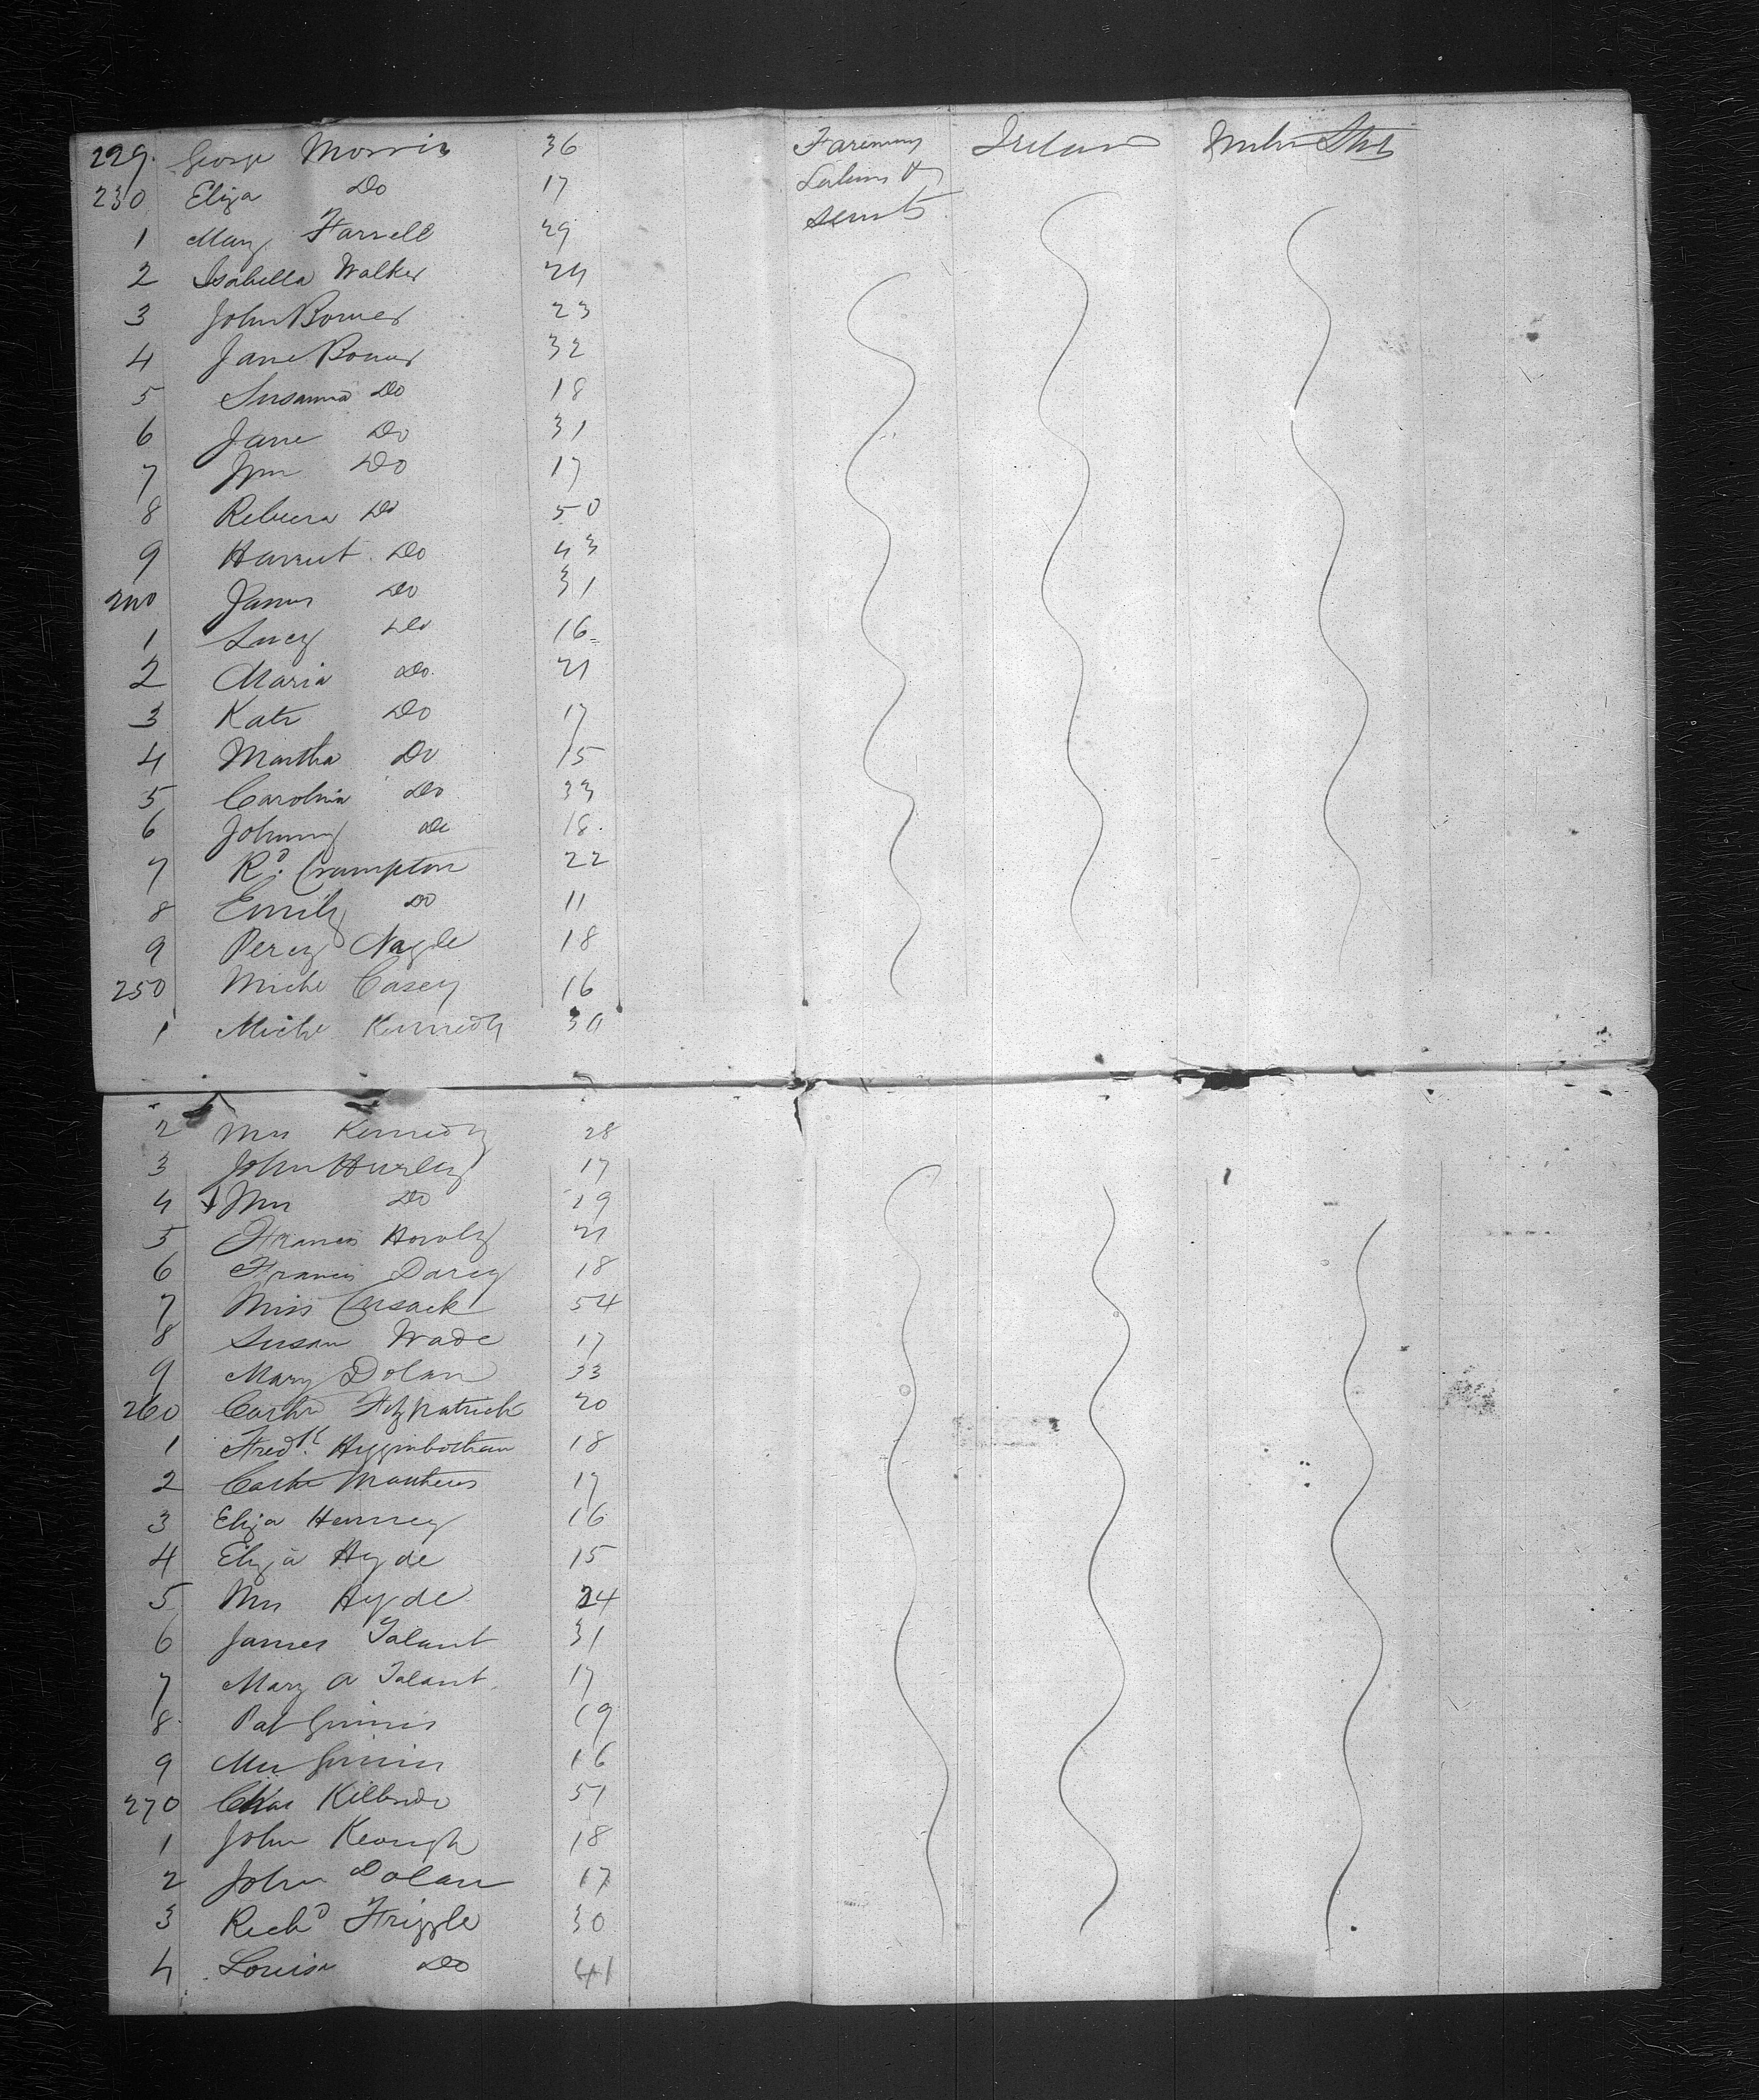 229. George Morris 36 Farmers Ireland United Stts
230 Eliza Do 17 Laborers &
1 Mary Farrell 29 servts
2 Isabella Walker 24
3 John Bower 23
4 Jane Bower 32
5 Susanna Do 18
6 Jane Do 31
7 Do 17
8 Rebecca Do 50
9 Harriet Do 43
240 James Do 31
1 Lucy Do 16
2 Maria Do. 21
3 Kate Do 17
4 Martha Do 15
5 Carolina Do 33
6 Johnny Do 18.
7 Rd. Crampton 22
8 Emily Do 11
9 Percy Nagle 18
250 Michl Casey 16
1 Michl Kennedy 30
2 Mrs Kennedy 28
3 John Hurley 17
4 Mrs Do 19
5 Francis 21
6 Francis Darcy 18
7 Miss Cusack 54
8 Susan Wade 17
9 Mary Dolan 33
260 Cathe Fitzpatrick 20
1 Fredk. Higginbotham 18
2 Cathe Mathews 17
3 Eliza 16
4 Eliza Hyde 15
5 Mrs Hyde 24
6 James Talant 31
7 Mary A Talant 17
8 Pat Ginnis 19
9 Mrs Ginnis 16
270 Chas Kilbride 51
1 John Keough 18
2 John Dolan 17
3 Richd Frizzle 30
4 Louisa Do 41